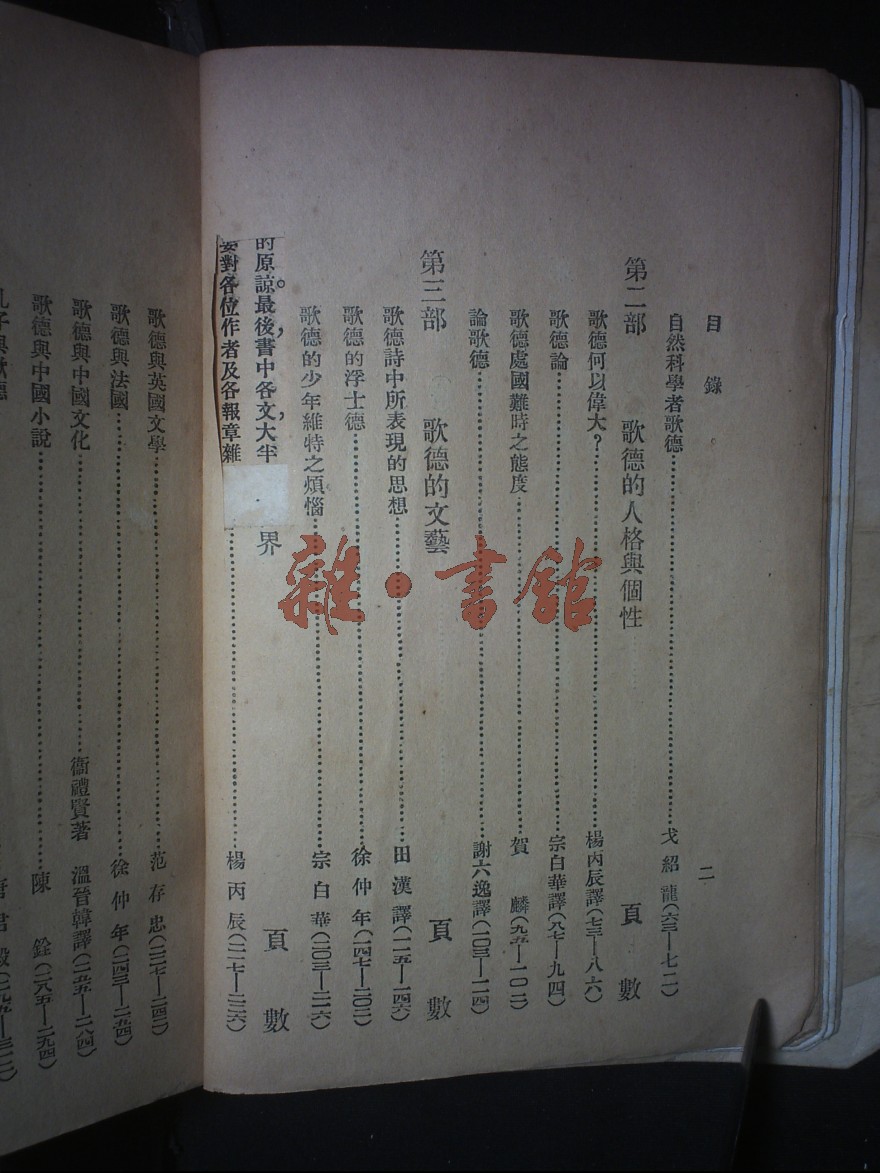 目錄 二
自然科學者歌德 戈紹龍(六三—七二)
第二部 歌德的人格與個性 頁數
歌德何以偉大？ 楊丙辰譯(七三—八六)
歌德論 宗白華譯(八七—九四)
歌德處國難時之態度 賀麟(九五—一〇二)
論歌德 謝六逸譯(一〇三—一一四)
第三部 歌德的文藝 頁數
歌德詩中所表現的思想 田漢譯(一一五—一四六)
歌德的浮士德 徐仲年(一四七—二〇二)
歌德的少年維特之煩惱 宗白華(二〇三—二一六)
的原諒。最後，書中各文，大半
界 頁數
要對各位作者及各報章雜
楊丙辰(二一七—二二六)
歌德與英國文學 范存忠(二二七—二四二)
歌德與法國 徐仲年(二四三—二五四)
歌德與中國文化 衞禮賢著 溫晉韓譯(二五五—二八四)
歌德與中國小說 陳銓(二八五—二九四)
孔子與歌德 唐君毅(二九五—三一二)
雜·書館